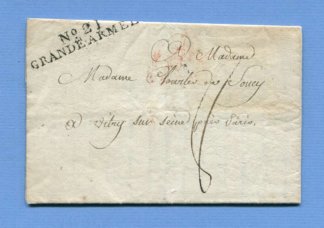 No 21
GRANDE-ARMÉE
A Madame
Madame de Soucy
a vitry sur seine près Paris.